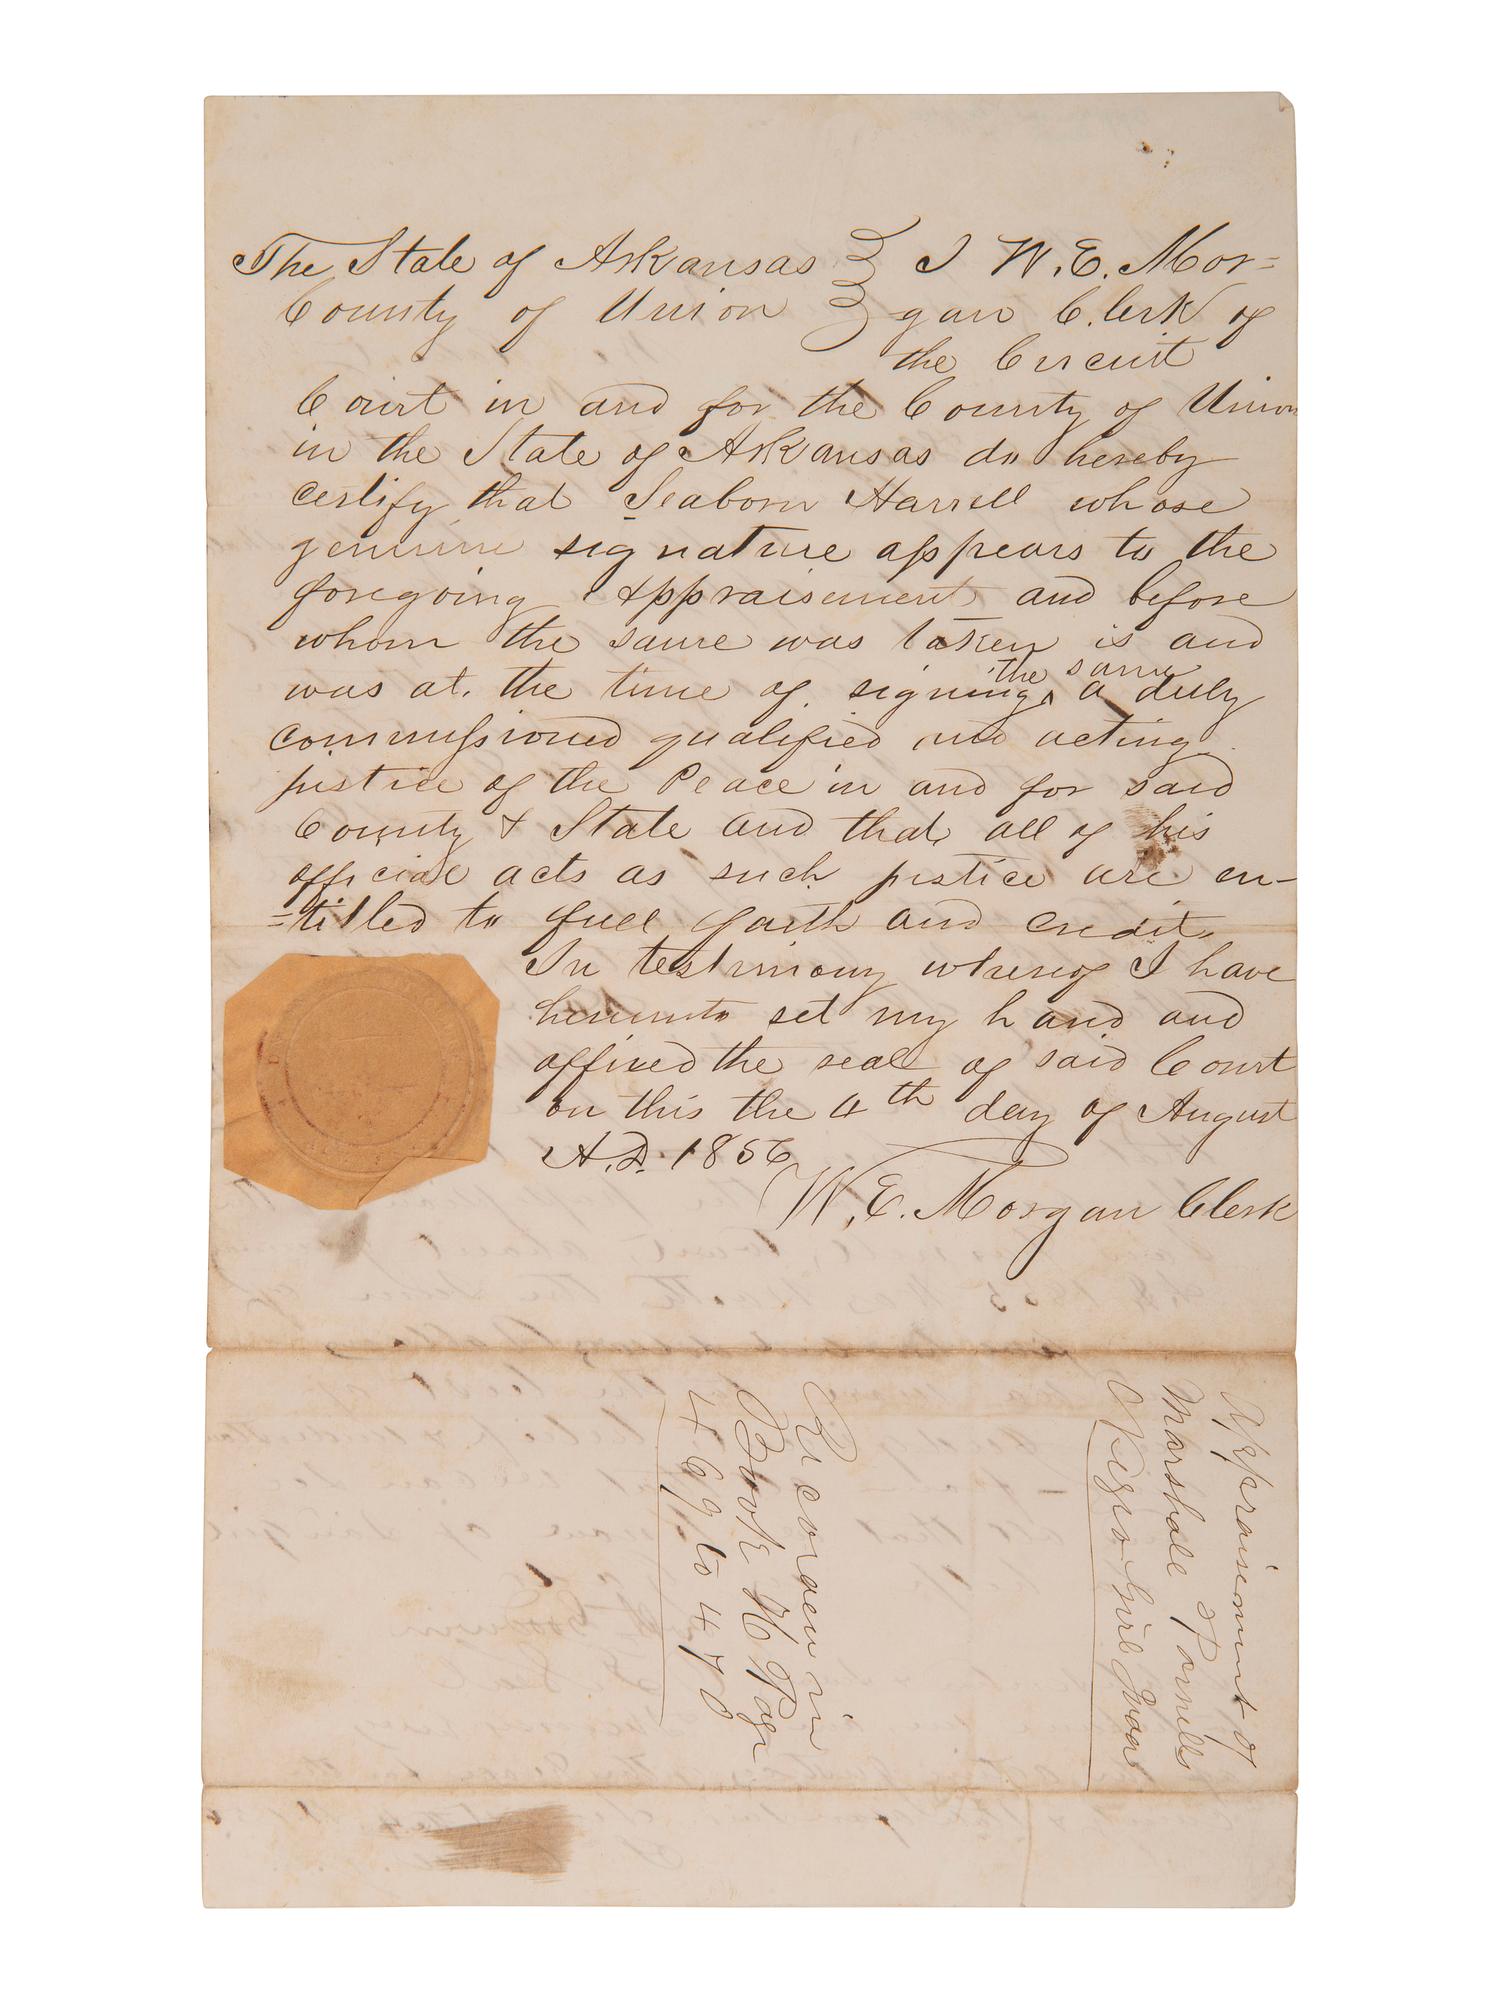 The State of Arkansas } I W. E. Mor=
County of Union } gan Clerk of
the Circuit
Court in and for the County of Union
in the State of Arkansas do hereby
certify that Seaborn Harrell whose
genuine signature appears to the
foregoing Appraisement and before
whom the same was taken is and
the same
was at the time of signing ^ a duly
commissioned qualified and acting
justice of the Peace in and for said
County & State and that all of his
official acts as such justice are en-
=titled to full faith and credit.
In testimony whereof I have
hereunto set my hand and
affixed the seal of said Court
on this the 4th day of August
A.D. 1856
W. E. Morgan Clerk
Appraisement of
Marshall
Negro Girl
Recorded in
Book H Page
469 to 470